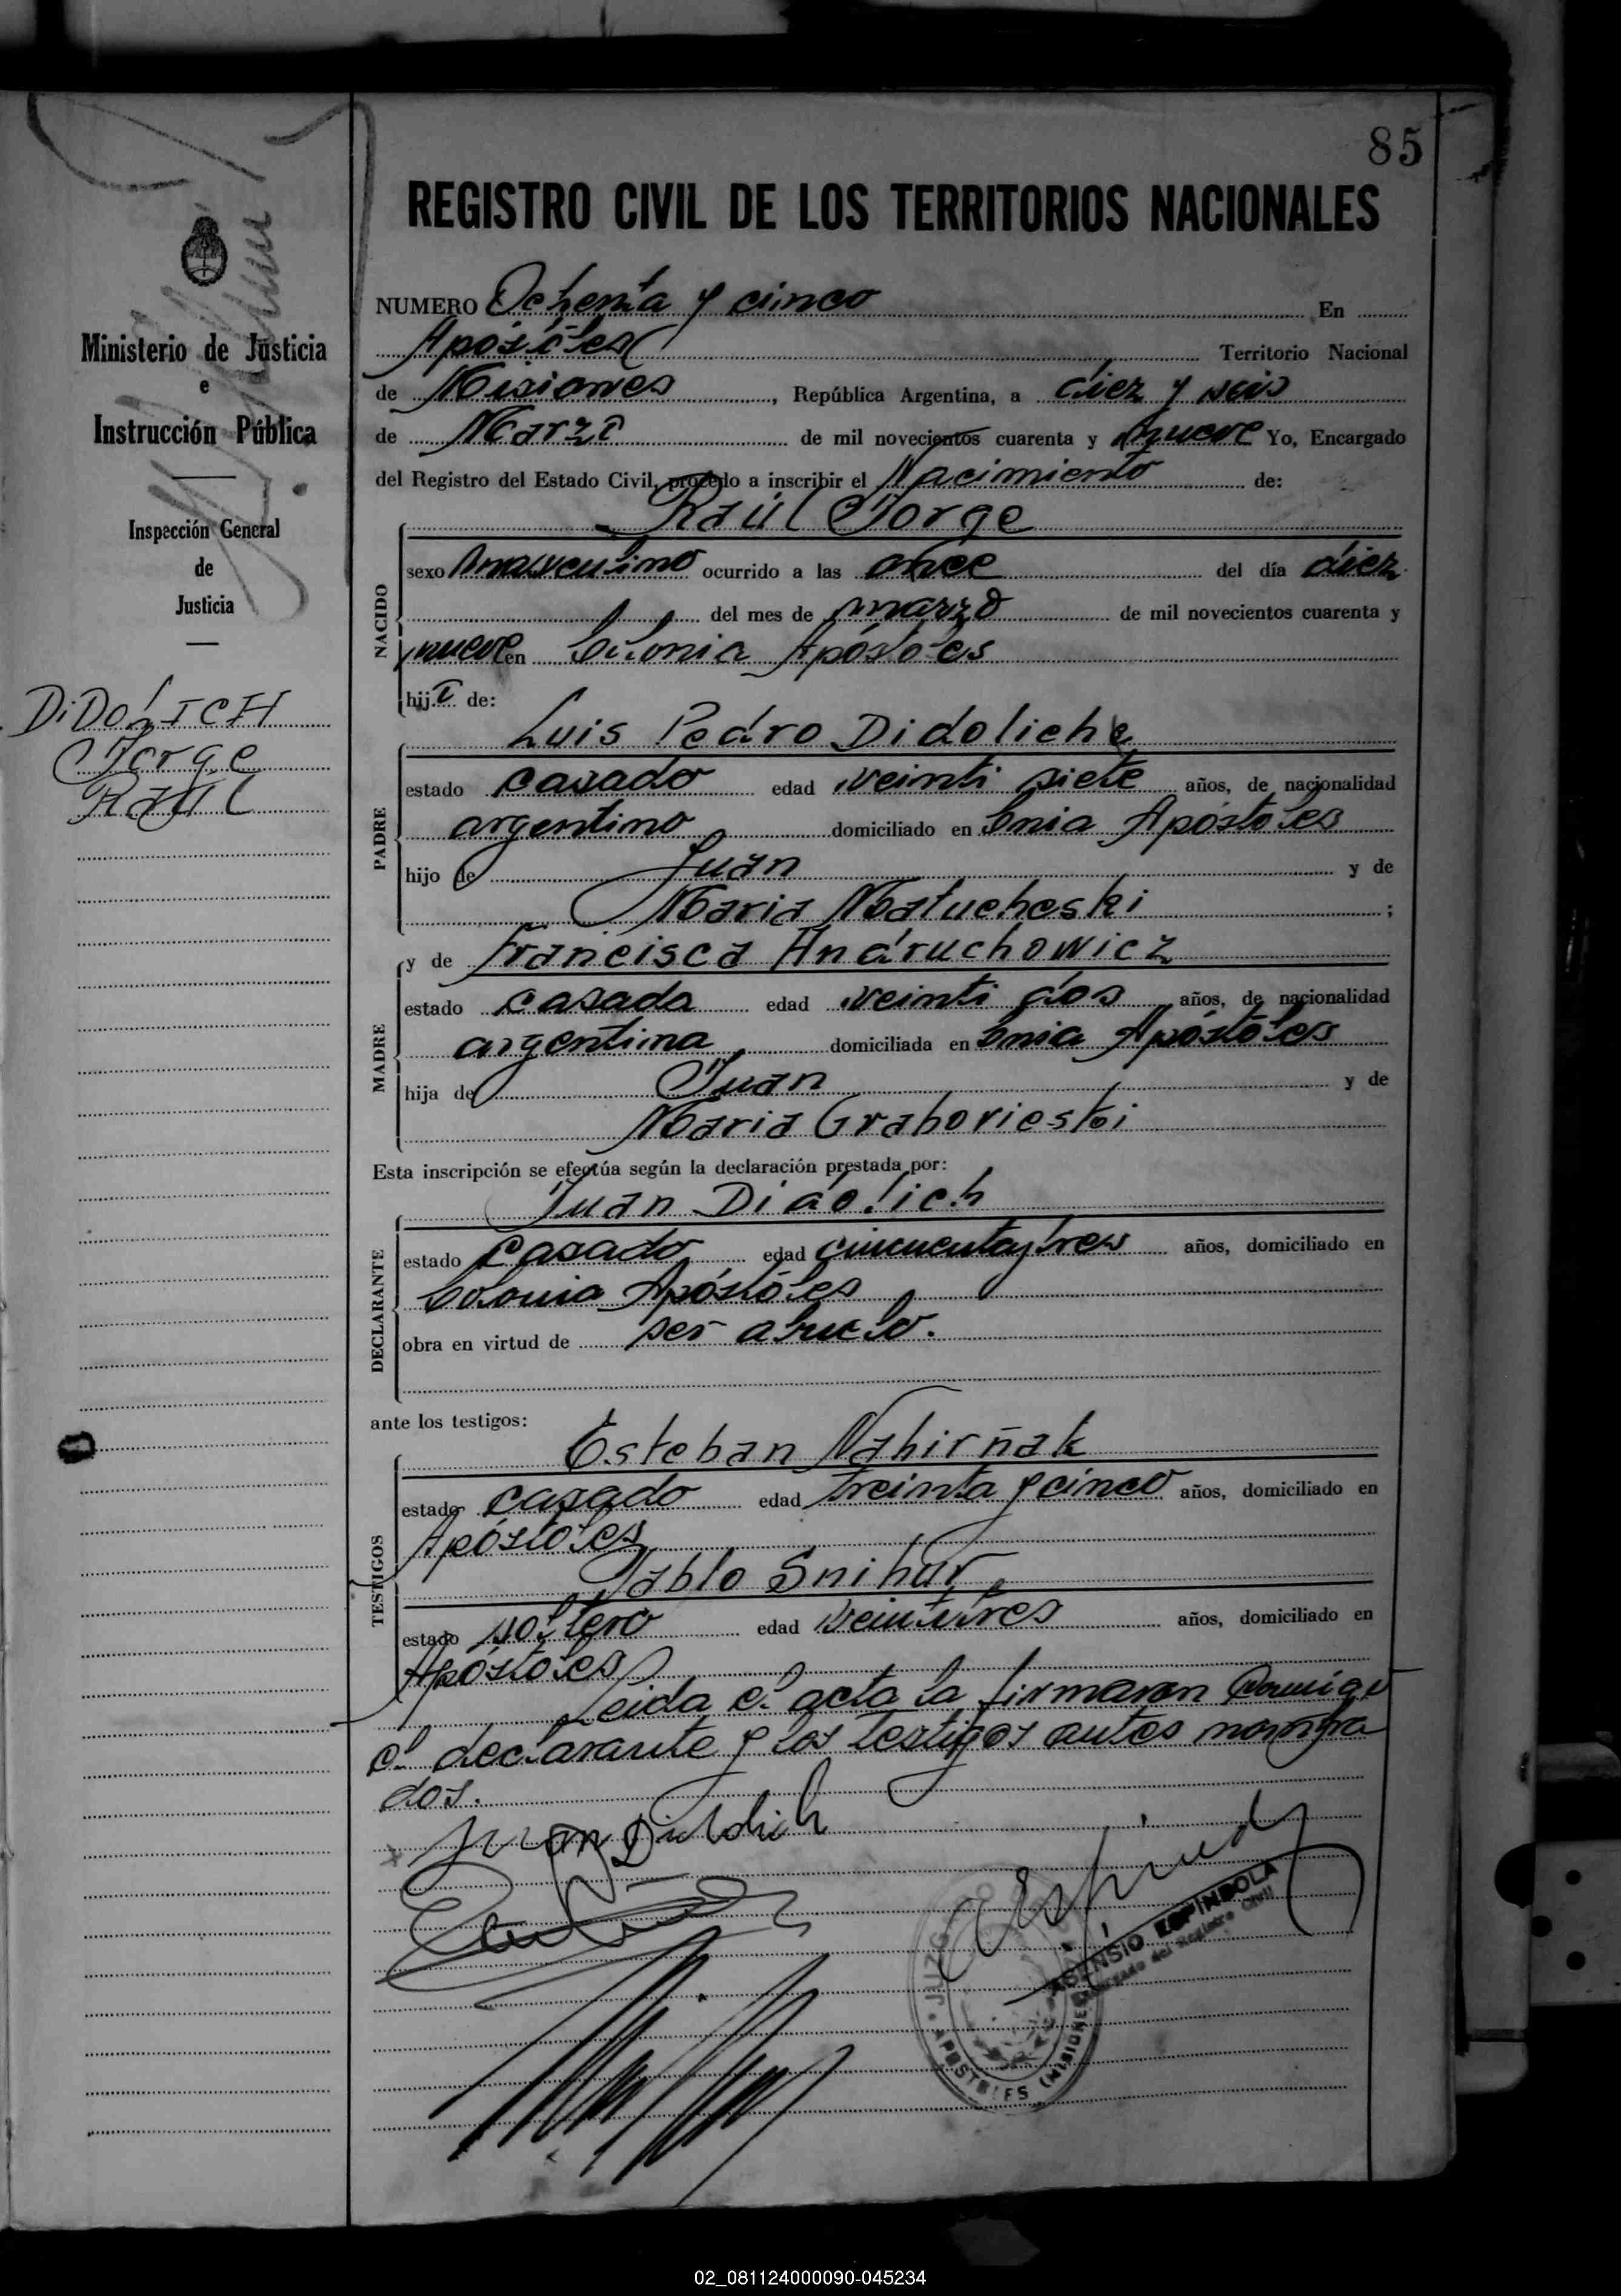 85
REGISTRO CIVIL DE LOS TERRITORIOS NACIONALES
Ministerio de Justicia
e
Instrucción Pública
Inspección General
de
Justicia
DiDOLICH
Jorge
Raúl
NUMERO Ochenta y cinco En
Apóstoles Territorio Nacional
de Misiones, República Argentina, a diez y seis
de Marzo de mil novecientos cuarenta y nueve Yo, Encargado
del Registro del Estado Civil, procedo a inscribir el Nacimiento de:
Raúl Jorge
NACIDO
sexo masculino ocurrido a las once del día diez
del mes de marzo de mil novecientos cuarenta y
nueve en Colonia Apóstoles
hijo de:
Luis Pedro Didolich
PADRE
estado casado edad veinti siete años, de nacionalidad
argentino domiciliado en Cnia Apóstoles
hijo de Juan y de
Maria Matucheski ;
y de Francisca Andruchowicz
MADRE
estado casada edad veinti dos años, de nacionalidad
argentina domiciliada en Cnia Apóstoles
hija de Juan y de
Maria Grabovieski
Esta inscripción se efectúa según la declaración prestada por:
Juan Didolich
DECLARANTE
estado casado edad cincuentaytres años, domiciliado en
Colonia Apóstoles
obra en virtud de ser abuelo.
ante los testigos:
Esteban Nahirñak
TESTIGOS
estado casado edad treinta y cinco años, domiciliado en
Apóstoles
Pablo Snihur
estado soltero edad veintitres años, domiciliado en
Apóstoles
Leida el acta la firmaron conmigo
el declarante y los testigos antes nombra
dos.
Juan Didolich
ASENSIO ESPINDOLA
Encargado del Registro Civil
JUZGADO
APOSTOLES (MISIONES)
02_081124000090-045234